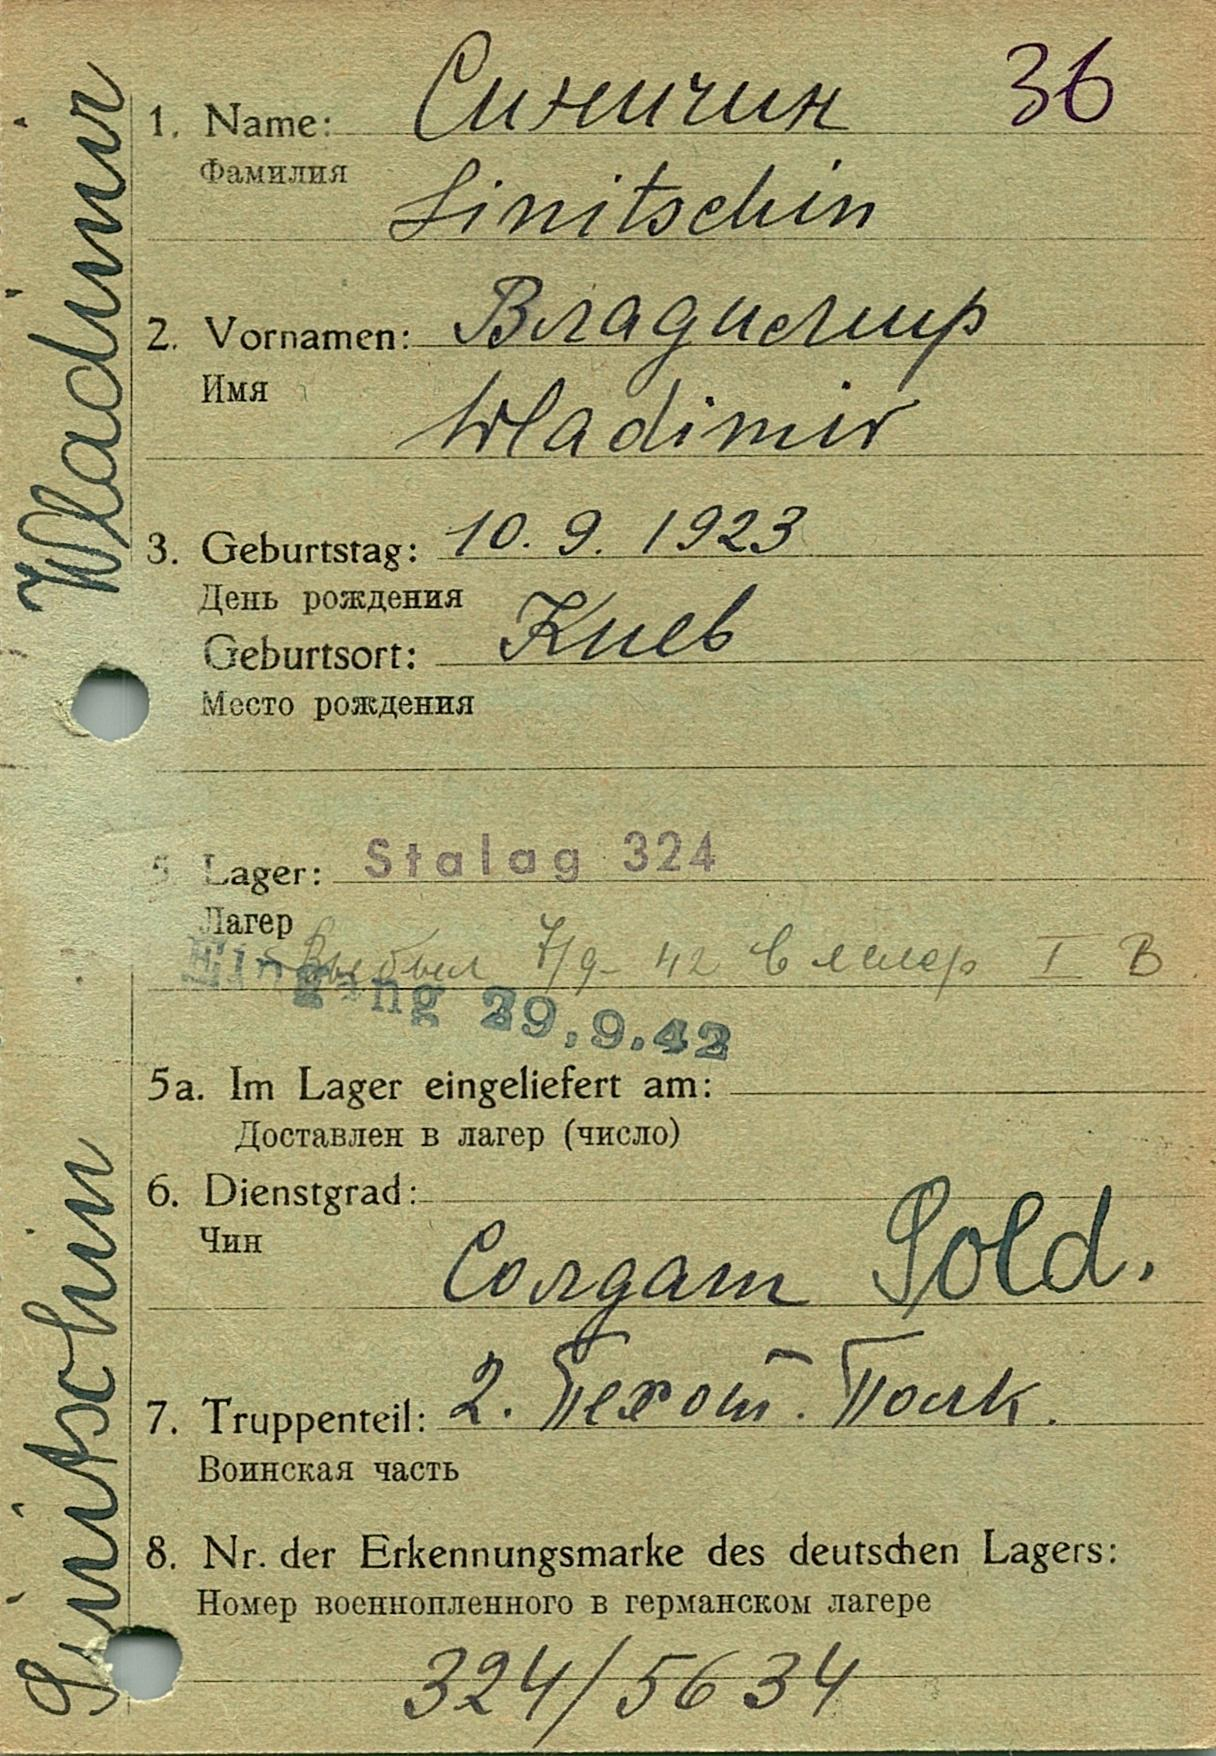 36
1. Name: Синичин
Фамилия
Sinitschin
2. Vornamen: Владимир
Имя
Wladimir
3. Geburtstag: 10. 9. 1923
День рождения
Geburtsort: Киев
Место рождения
5. Lager: Stalag 324
Лагер
Выбыл 7/9- 42 в лагер I B
Eingang 29.9.42
5a. Im Lager eingeliefert am:
Доставлен в лагер (число)
6. Dienstgrad:
Чин
Солдат Sold.
7. Truppenteil: 2. Пехот. Полк.
Воинская часть
8. Nr. der Erkennungsmarke des deutschen Lagers:
Номер военнопленного в германском лагере
324/5634
Sinitschin Wladimir